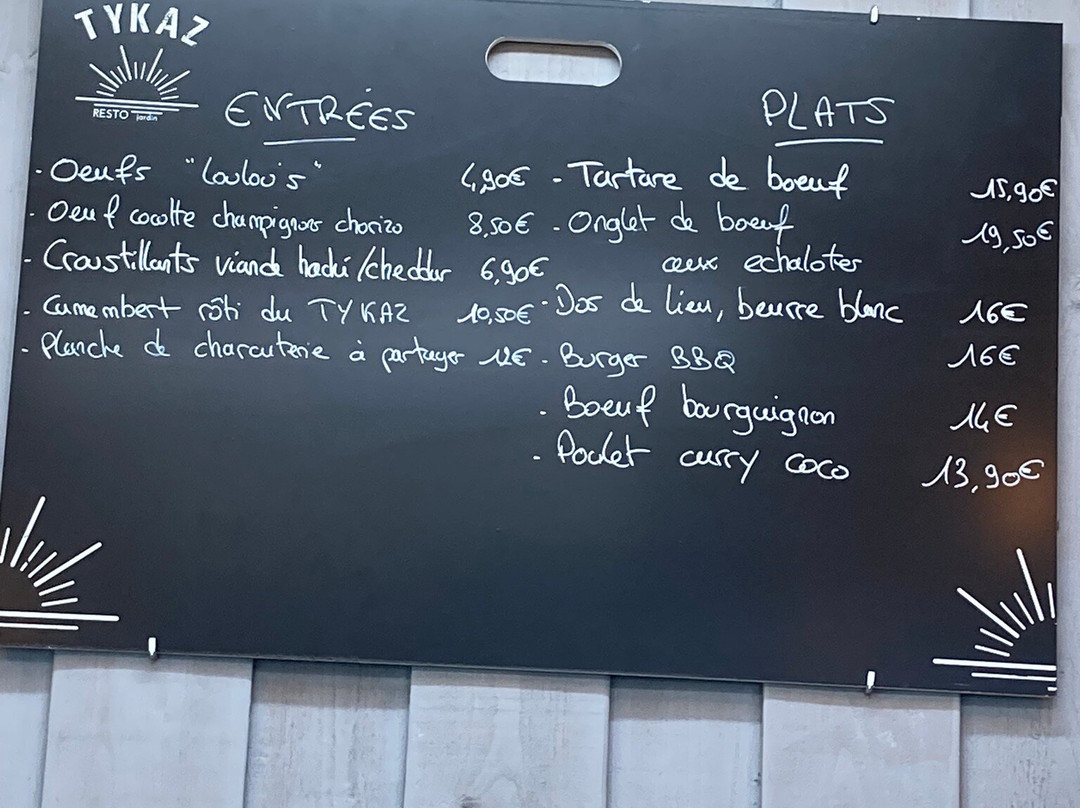 TYKAZ
RESTO jardin
ENTRÉES
- Oeufs "Loulou's" 4,90€
- Oeuf cocotte champignons chorizo 8,50€
- Croustillants viande haché/cheddar 6,90€
- Camembert rôti du TYKAZ 10,50€
- Planche de charcuterie à partager 12€
PLATS
- Tartare de boeuf 15,90€
- Onglet de boeuf 19,50€
aux echalotes
- Dos de lieu, beurre blanc 16€
- Burger BBQ 16€
- Boeuf bourguignon 14€
- Poulet curry coco 13,90€